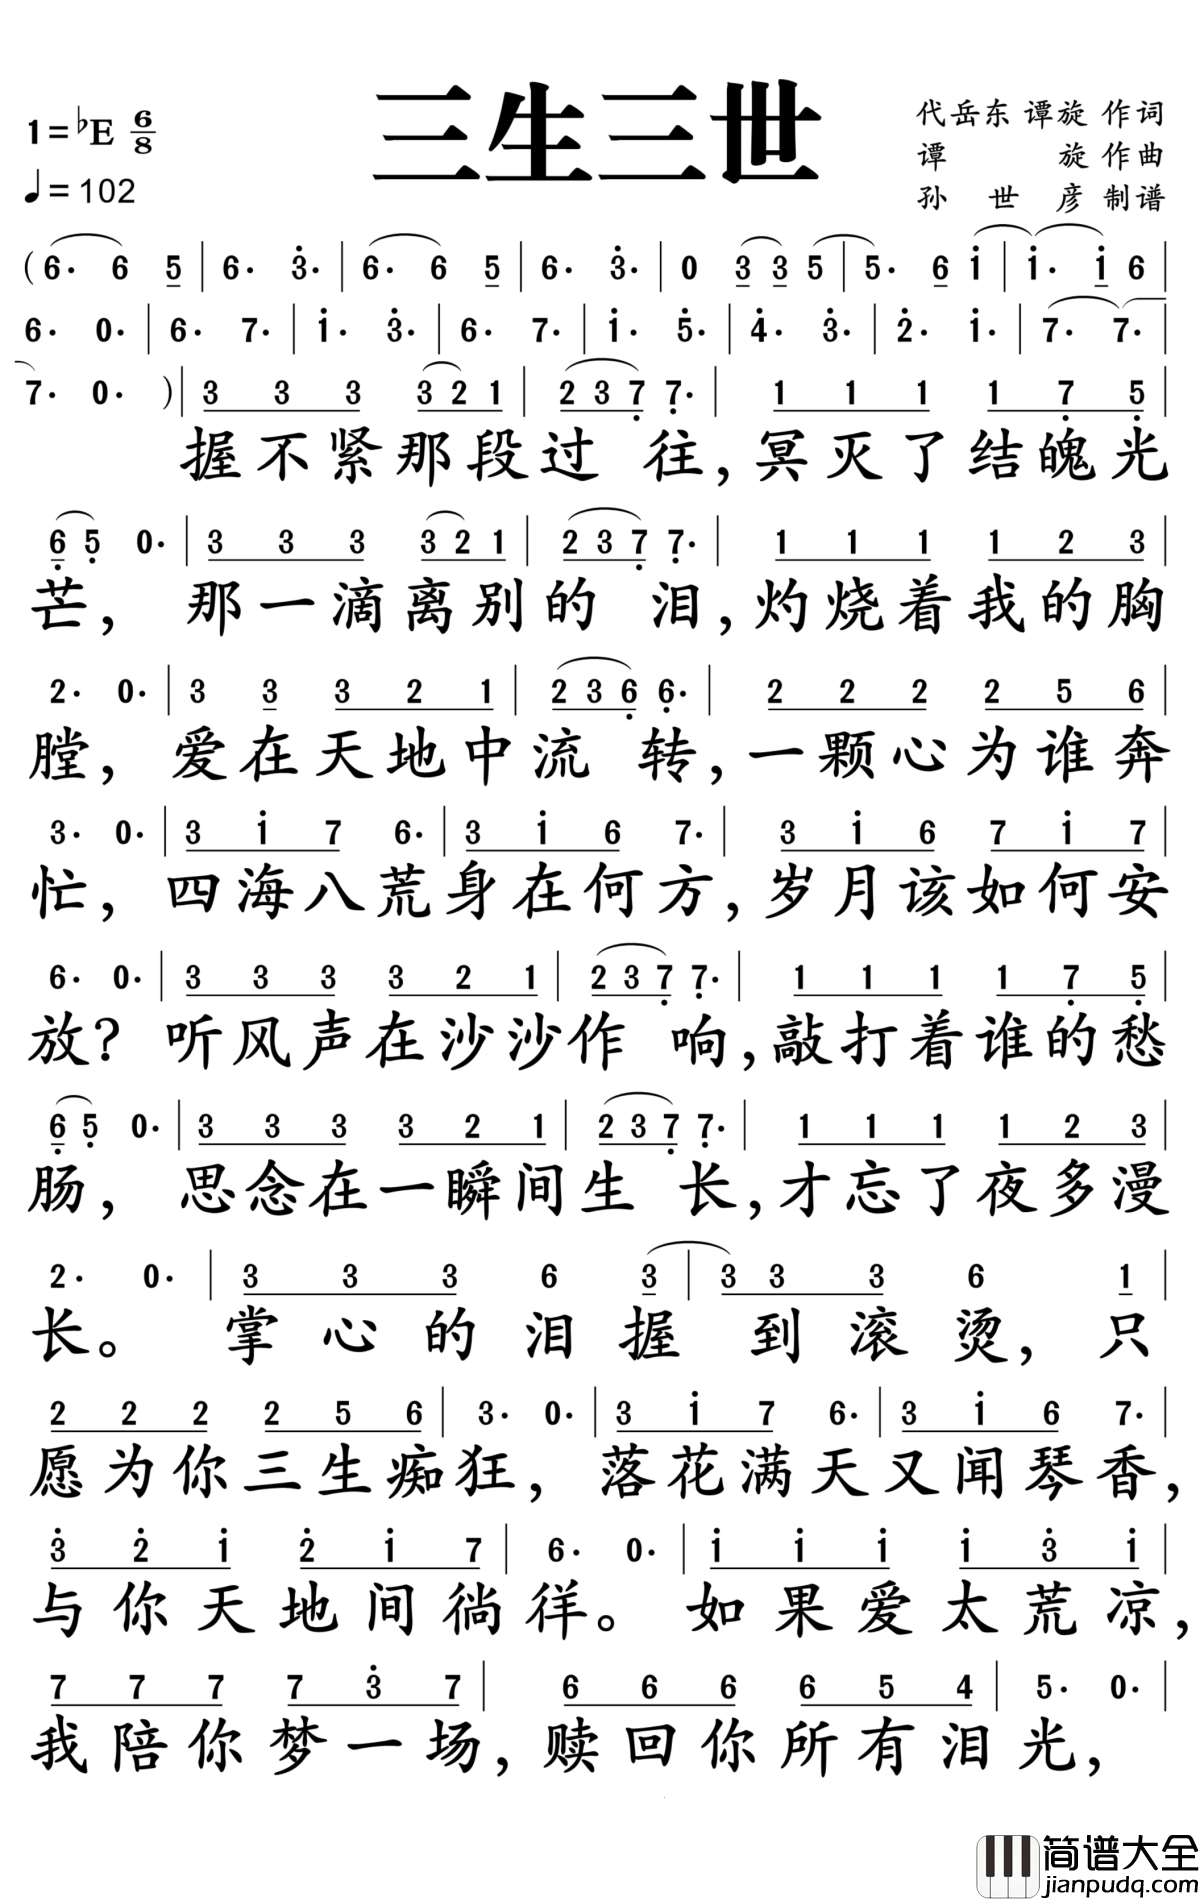 三生三世
1=♭E 6/8
♩=102
代岳东 谭旋 作词
谭 旋 作曲
孙 世 彦 制谱
( 6· 6 5 | 6· 3· | 6· 6 5 | 6· 3· | 0 3 3 5 | 5· 6 i | i· i 6 |
6· 0· | 6· 7· | i· 3· | 6· 7· | i· 5· | 4· 3· | 2· i· | 7· 7· |
7· 0· ) | 3 3 3 3 2 1 | 2 3 7 7· | 1 1 1 1 7 5 |
握不紧那段过 往，冥灭了结魄光
6 5 0· | 3 3 3 3 2 1 | 2 3 7 7· | 1 1 1 1 2 3 |
芒， 那一滴离别的 泪，灼烧着我的胸
2· 0· | 3 3 3 2 1 | 2 3 6 6· | 2 2 2 2 5 6 |
膛， 爱在天地中流 转，一颗心为谁奔
3· 0· | 3 i 7 6· | 3 i 6 7· | 3 i 6 7 i 7 |
忙， 四海八荒身在何方，岁月该如何安
6· 0· | 3 3 3 3 2 1 | 2 3 7 7· | 1 1 1 1 7 5 |
放？ 听风声在沙沙作 响，敲打着谁的愁
6 5 0· | 3 3 3 3 2 1 | 2 3 7 7· | 1 1 1 1 2 3 |
肠， 思念在一瞬间生 长，才忘了夜多漫
2· 0· | 3 3 3 6 3 | 3 3 3 6 1 |
长。 掌心的泪握 到滚烫，只
2 2 2 2 5 6 | 3· 0· | 3 i 7 6· | 3 i 6 7· |
愿为你三生痴狂， 落花满天又闻琴香，
3 2 i 2 i 7 | 6· 0· | i i i i 3 i |
与你天地间徜徉。 如果爱太荒凉，
7 7 7 7 3 7 | 6 6 6 6 5 4 | 5· 0· |
我陪你梦一场，赎回你所有泪光，
简谱大全
jianpudq.com